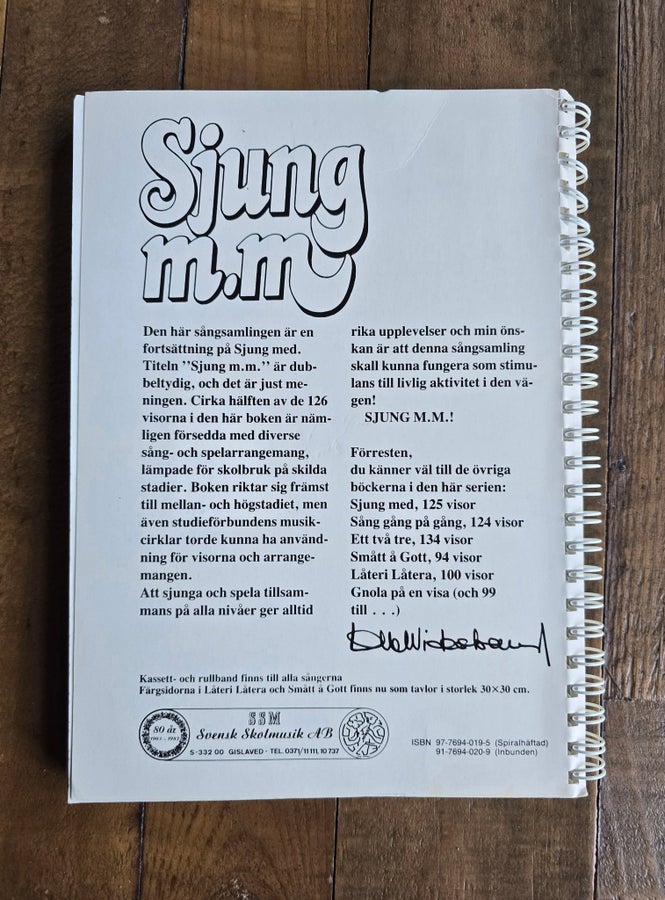 Sjung
m.m
Den här sångsamlingen är en
fortsättning på Sjung med.
Titeln ”Sjung m.m.” är dub-
beltydig, och det är just me-
ningen. Cirka hälften av de 126
visorna i den här boken är näm-
ligen försedda med diverse
sång- och spelarrangemang,
lämpade för skolbruk på skilda
stadier. Boken riktar sig främst
till mellan- och högstadiet, men
även studieförbundens musik-
cirklar torde kunna ha använd-
ning för visorna och arrange-
mangen.
Att sjunga och spela tillsam-
mans på alla nivåer ger alltid
rika upplevelser och min öns-
kan är att denna sångsamling
skall kunna fungera som stimu-
lans till livlig aktivitet i den vä-
gen!
SJUNG M.M.!
Förresten,
du känner väl till de övriga
böckerna i den här serien:
Sjung med, 125 visor
Sång gång på gång, 124 visor
Ett två tre, 134 visor
Smått å Gott, 94 visor
Låteri Låtera, 100 visor
Gnola på en visa (och 99
till . . .)
Kassett- och rullband finns till alla sångerna
Färgsidorna i Låteri Låtera och Smått å Gott finns nu som tavlor i storlek 30×30 cm.
80 år
SSM
Svensk Skolmusik AB
S-332 00 GISLAVED · TEL. 0371/11 111, 10 737
ISBN 97-7694-019-5 (Spiralhäftad)
91-7694-020-9 (Inbunden)